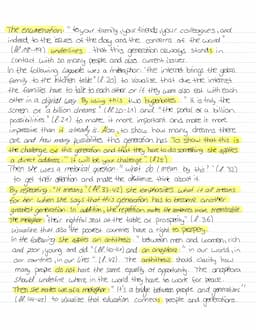 The enumeration "to your family, your friends, your colleagues, and
indeed to the issues of the day and the concerns of the world"
(ll. ) underlines that this generation always stands in
contact with so many people and also current issues.
In the following she uses a metaphor "the internet brings the global
family to the kitchen table" (l. 20) to visualise, that due the internet
the families have to talk to each other or if they were also eat with each
other in a digital way. By using this two hyperboles "it is truly the
screen of a billion dreams" (ll. 20-21) and "the portal of a billion
possibilities" (l. 21) to make it more important and make it more
impressive than it already is. Also, to show how many dreams there
are and how many possibilities this generation has. To show that this is
the challenge for this generation and that they have to do something she applies
a direct address: "It will be your challenge" (l. 25).
Then she uses a rhetorical question "what do I mean by this?" (l. 32)
to get their attention and make the audience think about it.
By repeating "it means" (ll. 33-42) she emphasizes what it all means
for her when she says that this generation has to become another
greatest generation. In addition, the repetition make the sentences more memorable.
The metaphor "their rightful seat at the table of prosperity" (l. 36)
visualise that also the poorest countries have a right to property.
In the following she applies an antithesis: "between men and women, rich
and poor, young and old" (ll. 40-41) and an anaphora "in our world, in
our countries, in our lives" (l. 42). The antithesis should clarify how
many people do not have the same equality of opportunity. The anaphora
should underline where in the world they have to work for peace.
Then she makes use of a metaphor: "It's a bridge between people and generations"
(ll. ) to visualise that education connects people and generations.